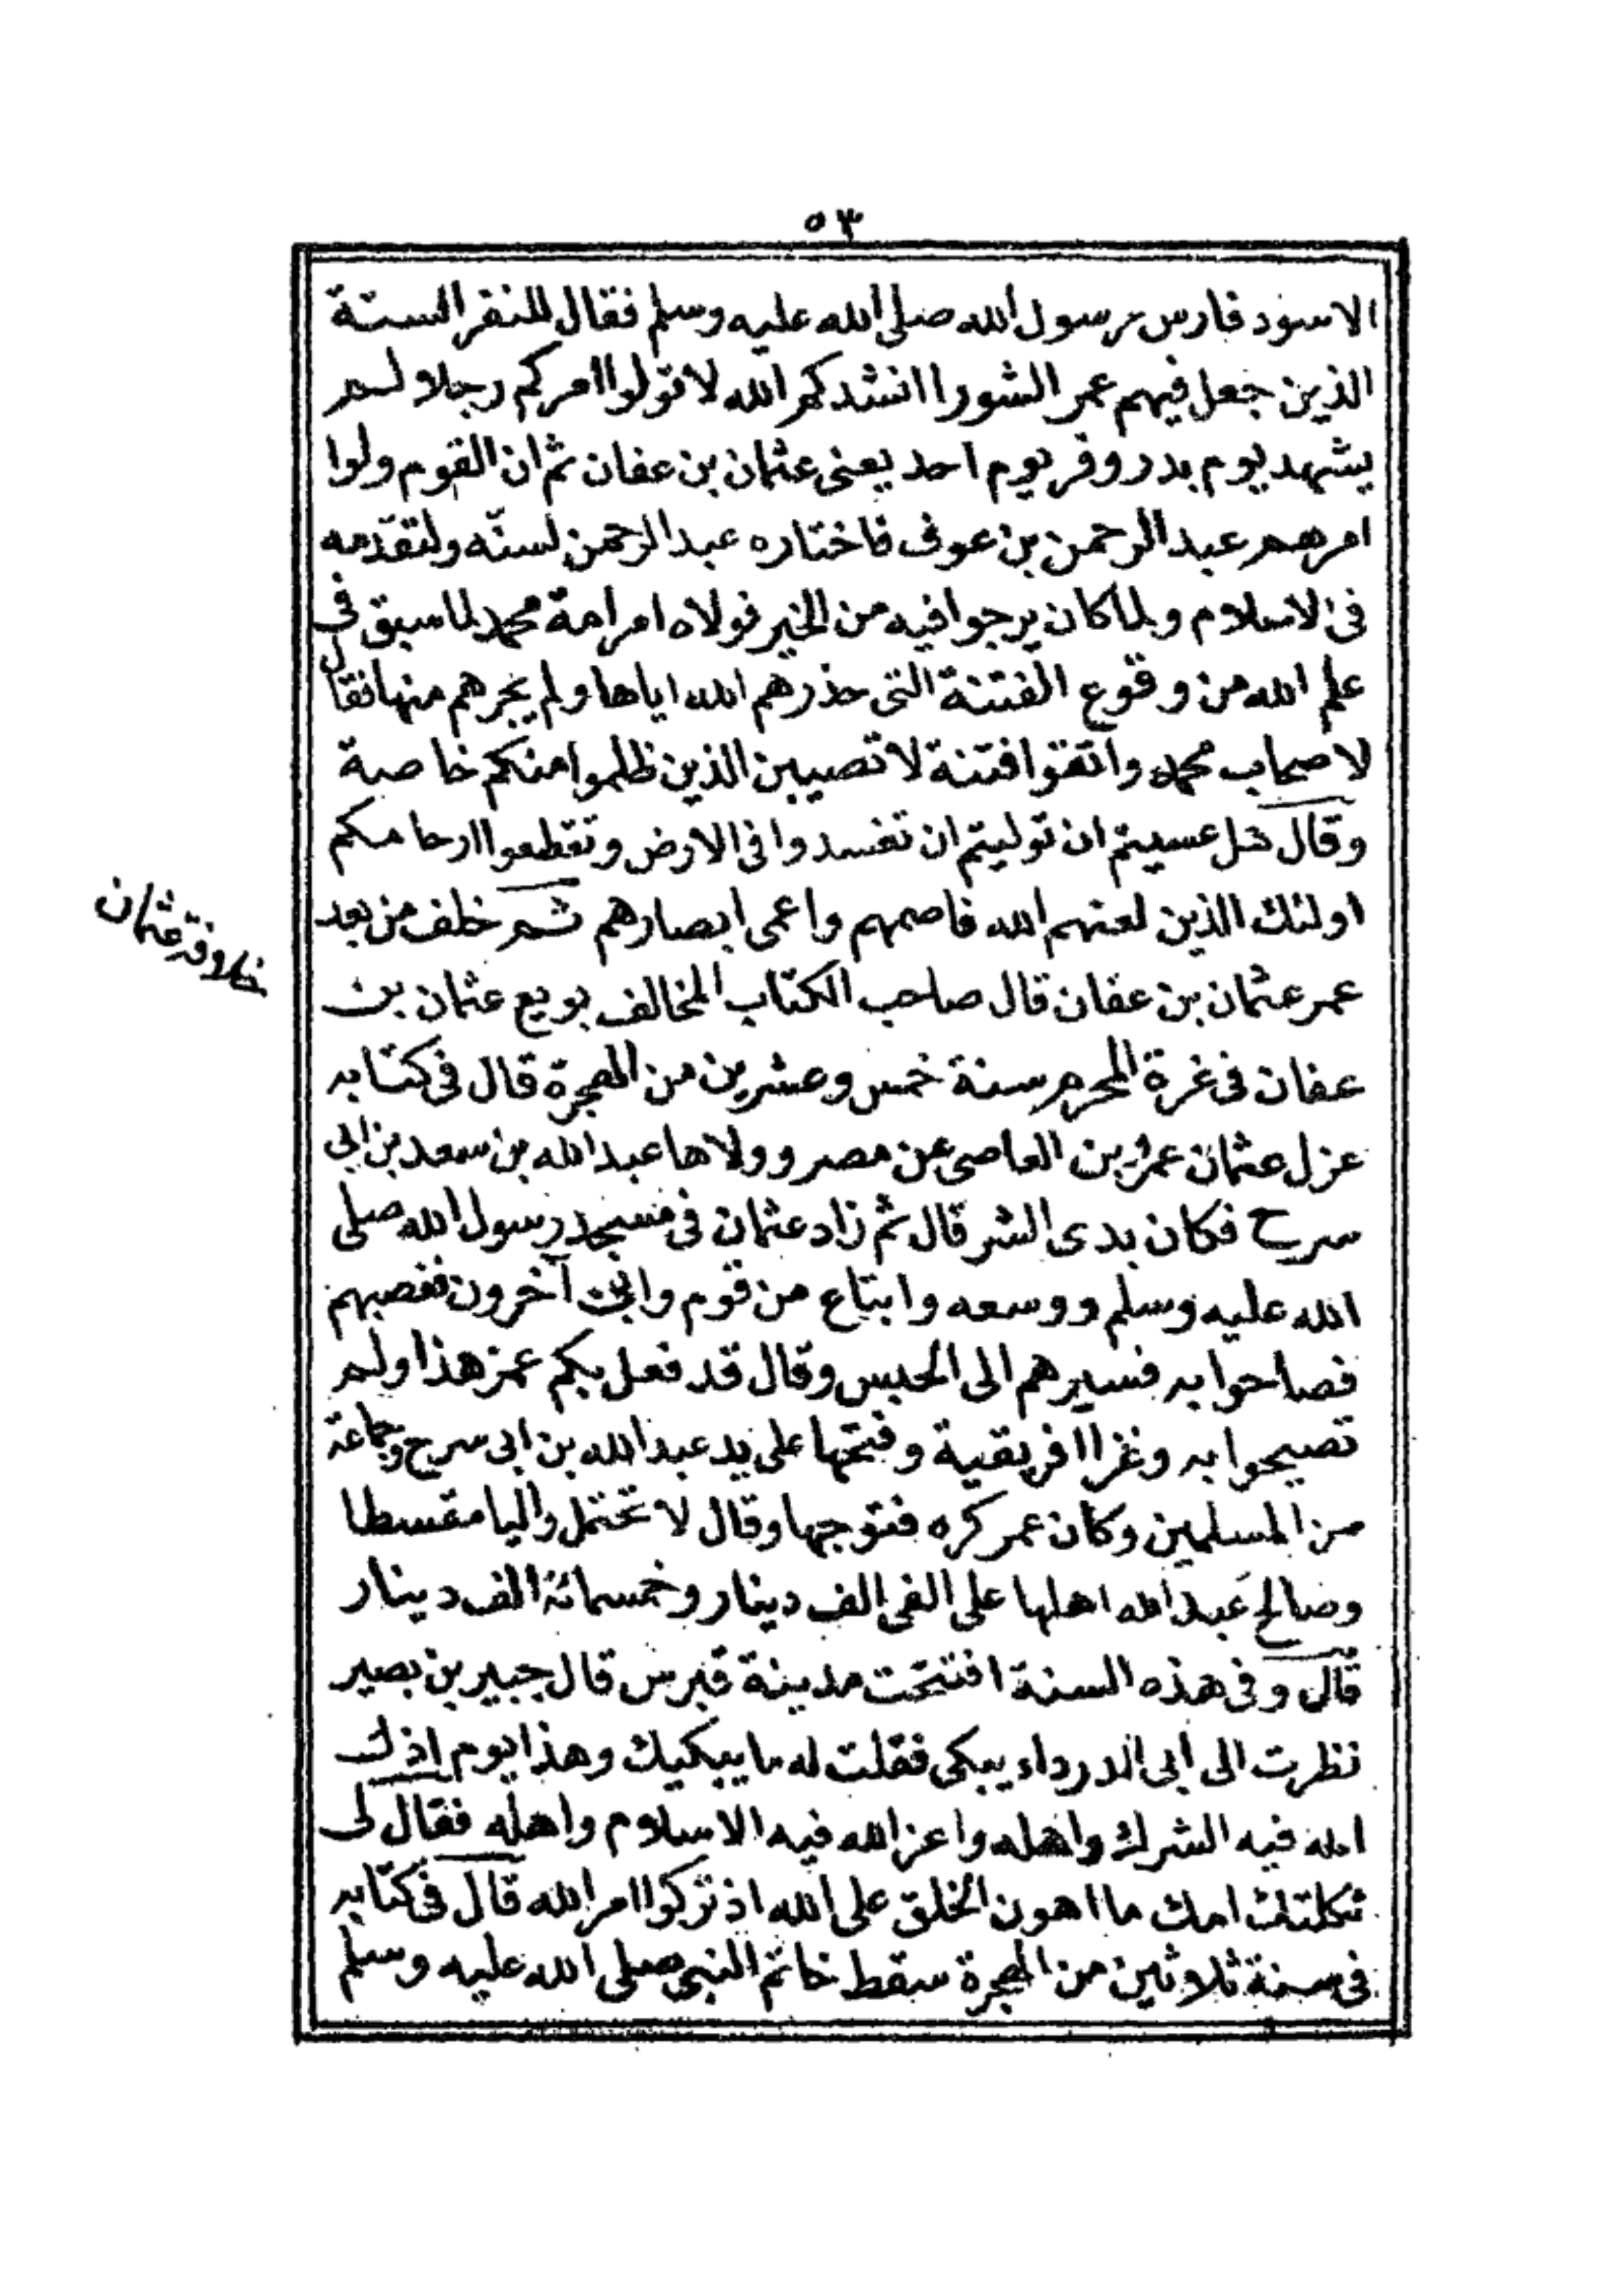 ٥٣
الاسود فارس رسول الله صلى الله عليه وسلم فقال للنفر الستة
الذين جعل فيهم عمر الشورا انشدكم الله لا تولوا امركم رجلا ولم
يشهد يوم بدر وفر يوم احد يعنى عثمان بن عفان ثم ان القوم ولوا
امرهم عبد الرحمن بن عوف فاختاره عبد الرحمن لسنّه ولتقدّمه
فى الاسلام ولما كان يرجوا فيه من الخير فولاه امر امة محمد لما سبق فى
علم الله من وقوع الفتنة التى حذرهم الله اياها ولم يجرهم منها فقال
لاصحاب محمد واتقوا فتنة لا تصيبن الذين ظلموا منكم خاصة
وقال هل عسيتم ان توليتم ان تفسدوا فى الارض وتقطعوا ارحامكم
اولئك الذين لعنهم الله فاصمهم واعمى ابصارهم ثم خلف من بعد
خلافة عثمان
عمر عثمان بن عفان قال صاحب الكتاب المخالف بويع عثمان بن
عفان فى غرة المحرم سنة خمس وعشرين من الهجرة قال فى كتابه
عزل عثمان عمرو بن العاصى عن مصر وولاها عبد الله بن سعد بن ابى
سرح فكان بدى الشر قال ثم زاد عثمان فى مسجد رسول الله صلى
الله عليه وسلم ووسعه وابتاع من قوم وابى آخرون فغصبهم
فصاحوا به فسيرهم الى الحبس وقال قد فعل بكم عمر هذا ولم
تصيحوا به وغزا افريقية وفتحها على يد عبد الله بن ابى سرح وجماعة
من المسلمين وكان عمر كره فتوجها وقال لا تحتمل واليا مقسطا
وصالح عبد الله اهلها على الفى الف دينار وخمسمائة الف دينار
قال وفى هذه السنة افتتحت مدينة قبرس قال جبير بن بصير
نظرت الى ابى الدرداء يبكى فقلت له ما يبكيك وهذا يوم اذل
الله فيه الشرك واهله واعز الله فيه الاسلام واهله فقال لى
ثكلتك امك ما اهون الخلق على الله اذ تركوا امر الله قال فى كتابه
فى سنة ثلاثين من الهجرة سقط خاتم النبى صلى الله عليه وسلم